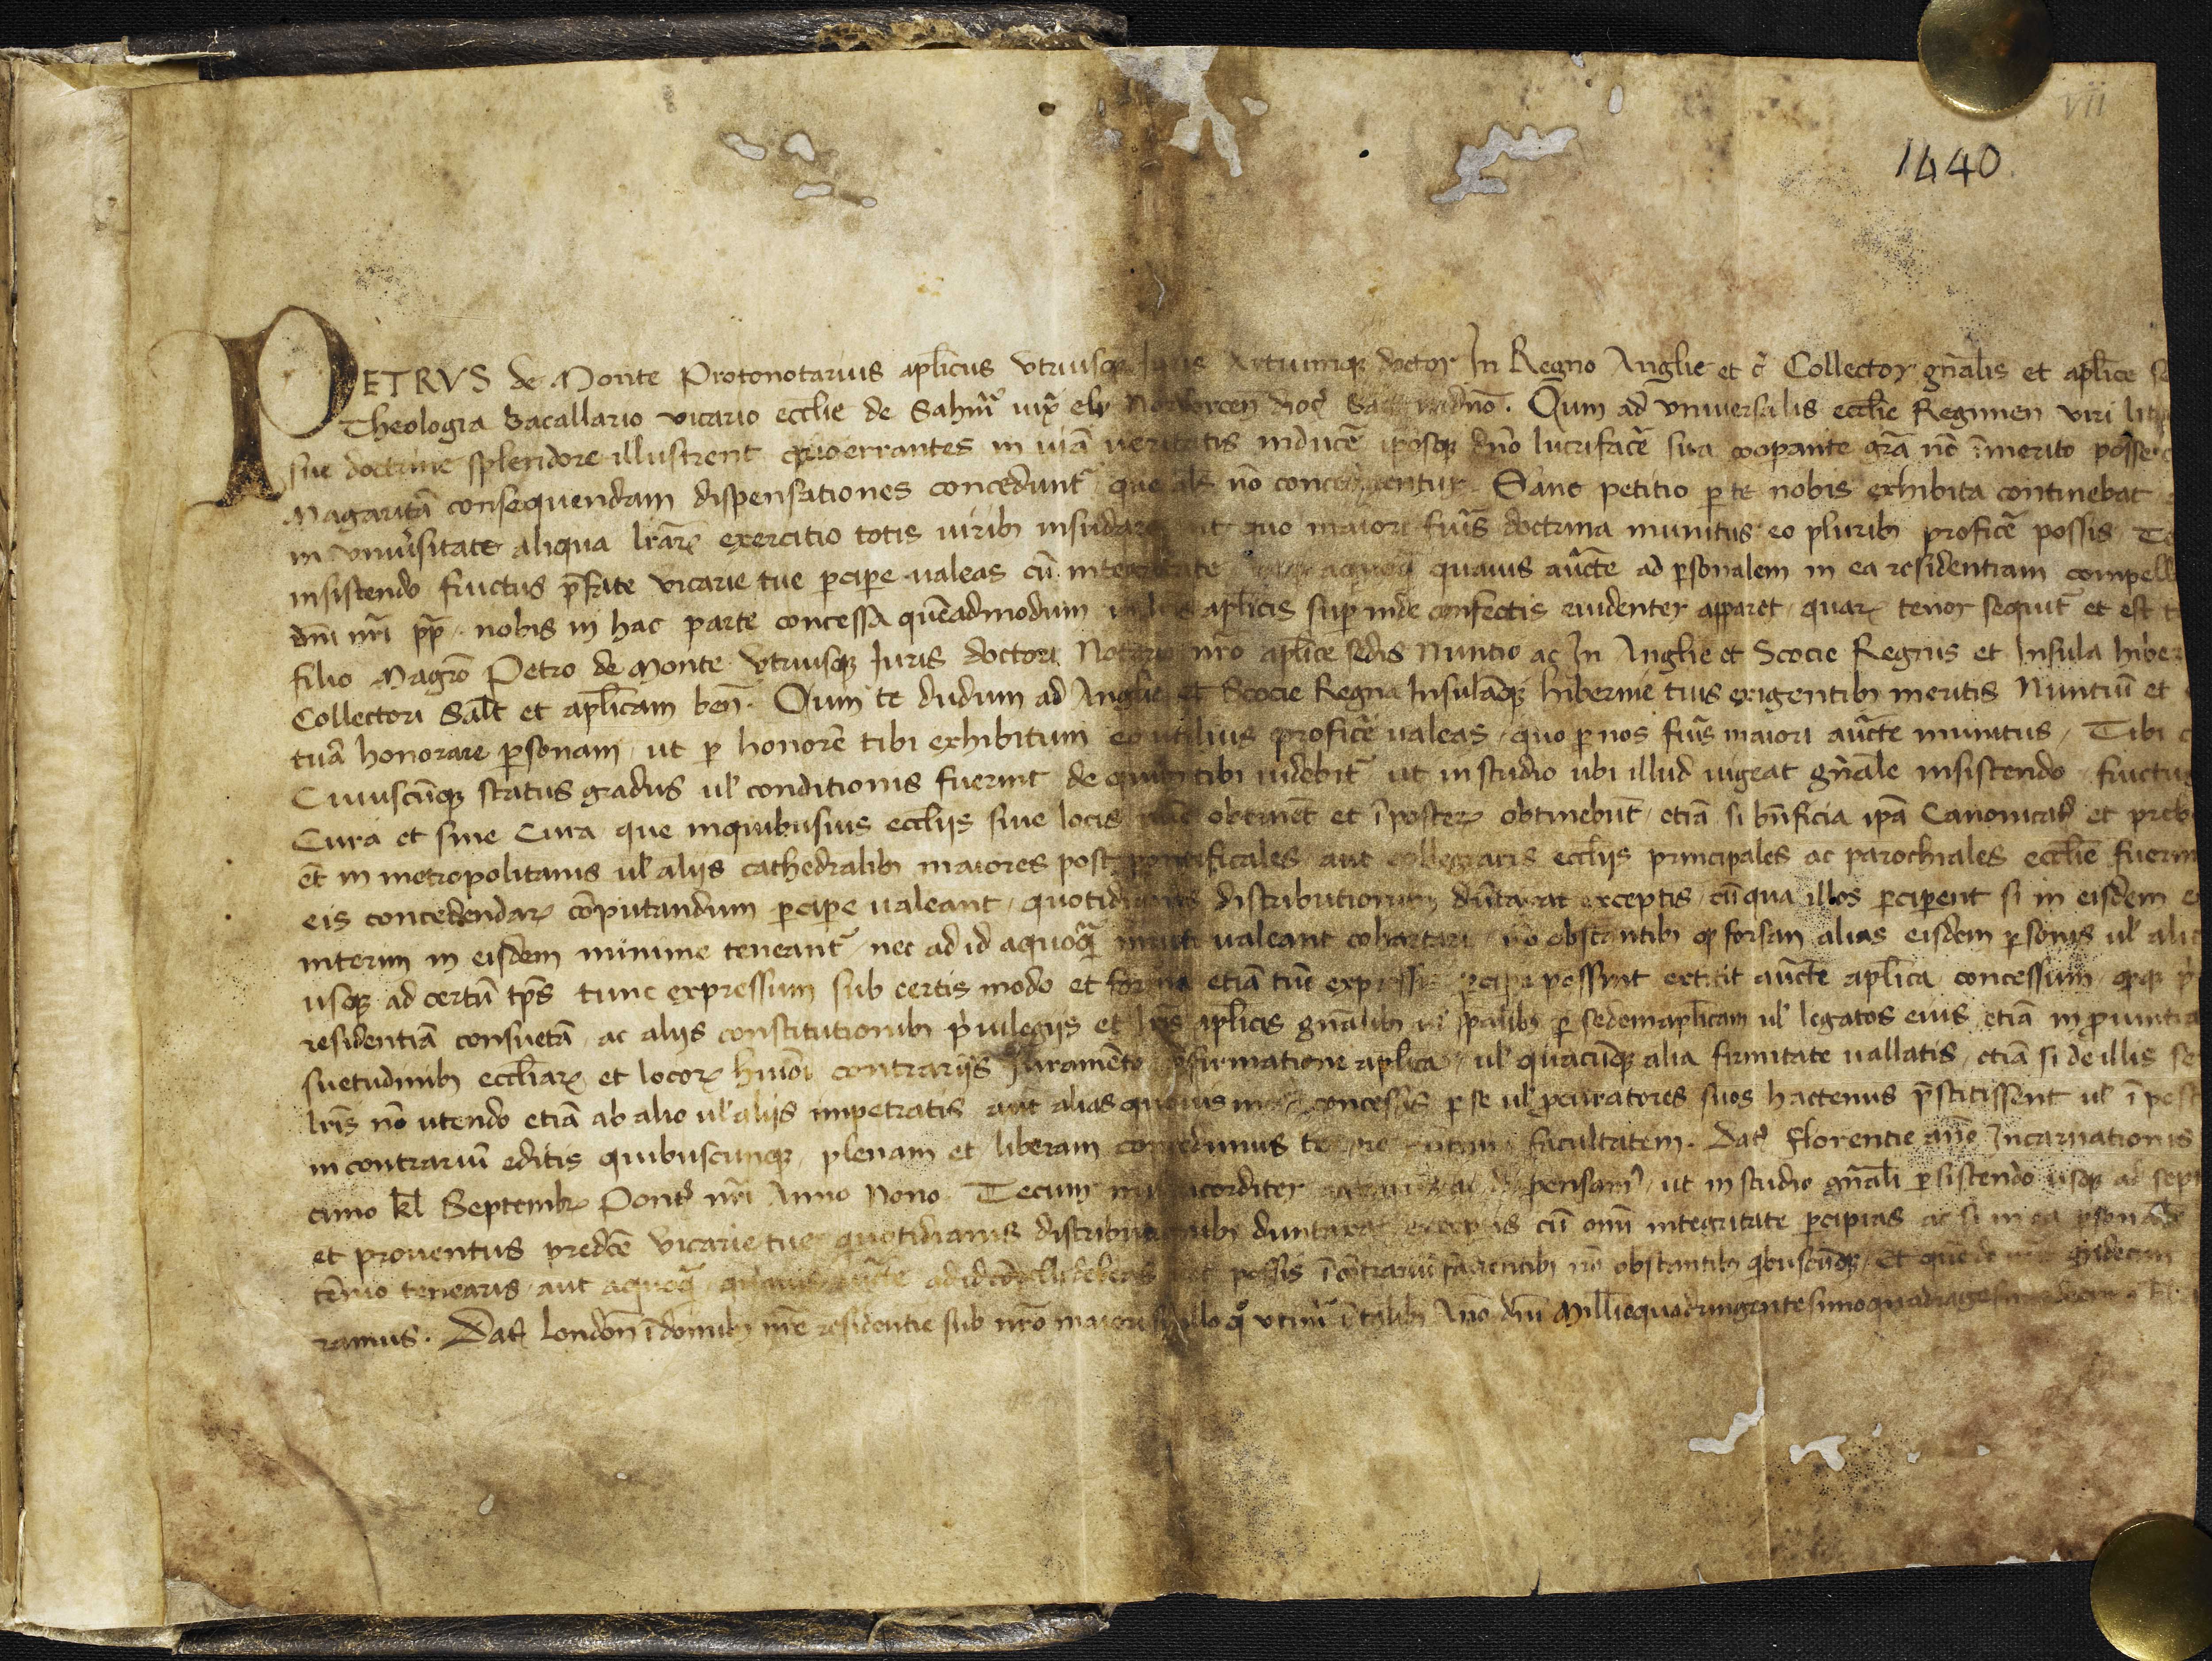 vii
1440.
PETRVS de Monte Protonotarius aplicus vtriusq Juris Artiumq doctor In Regno Anglie et c̄ Collector gn̄alis et aplice se
Theologia Bacallario vicario ecclie de Sahm̄ iux̄ ely Norwicen dioc̄ Sal in dn̄o. Qum ad vniuersalis ecclie Regimen viri lit
sue doctrine splendore illustrent quo errantes in uiā ueritatis inducē ip̄osq dn̄o lucrifacē sua coopante grā nō īmerito posse
Magaritā consequendam dispensationes concedunt̄ que als nō concederentur. Sane petitio p te nobis exhibita continebat
in vniūsitate aliqua lrāꝝ exercitio totis uirib insudare ut quo maiori fuīs doctrina munitus eo plurib proficē possis Te
insistendo fructus p̄fate vicarie tue pcipe ualeas cū integritate aquoq̄ quauis auc̄te ad psonalem in ea residentiam compell
dn̄i nr̄i pp̄ nobis in hac parte concessa quēadmodum in lris aplicis sup inde confectis euidenter apparet quaꝝ tenor sequit̄ et est t
filio Magrō Petro de Monte vtriusq Juris doctori Notario nr̄o aplice sedis Nuntio ac In Anglie et Scocie Regnis et Insula hiber
Collectori Salt et aplicam ben̄. Qum te dudum ad Anglie et Scocie Regna Insulāq hibernie tuis exigentib meritis Nuntiū et
tuā honorare psonam ut p honorē tibi exhibitum eo utilius proficē ualeas quo p nos fuīs maiori auc̄te munitus Tibi c
Cuiuscūq status gradus ul conditionis fuerint de quib tibi uidebit̄ ut in studio ubi illud uigeat gn̄ale insistendo fructus
Cura et sine Cura que inquibusuis eccliis siue locis obtinēt et ī posteꝝ obtinebūt etiā si bn̄ficia ipā Canonicat et preb
ēt in metropolitanis ul aliis cathedralib maiores post pontificales aut collegiatis ecclijs principales ac parochiales ecclie fuerin
eis concedendaꝝ cōputandum pcipe ualeant quotidianis distributionib dūtaxat exceptis cū qua illos pciperent si in eisdem e
interim in eisdem minime teneant̄ nec ad id aquoq̄ inuiti ualeant cohartari nō obstantib q forsan alias eisdem psonis ul alic
usq ad certū tp̄s tunc expressum sub certis modo et forma etiā tūc expressis pcipe possint extitit auc̄te aplica concessum qq p
residentiā consuetā ac aliis constitutionib p̄uilegijs et lris aplicis gn̄alib ul spālib p sedem aplicam ul legatos eius etiā in prouintia
suetudinib eccliaꝝ et locoꝝ hmōi contrarijs Juramēto cōfirmatione aplica ul quacūq alia firmitate uallatis etiā si de illis se
lris nō utendo etiā ab alio ul aliis impetratis aut alias quouis modo concessis p se ul pcuratores suos hactenus p̄stitissent ul ī post
in contrariū editis quibuscunq plenam et liberam concedimus tenore facultatem. Dat Florentie ann̄ Incarnationis
cimo kl Septembꝝ Pont nr̄i Anno Nono Tecum misericorditer dispensam̄ ut in studio gn̄ali psistendo usq ad sept
et prouentus predc̄e vicarie tue quotidianis distributionib duntaxat exceptis cū omī integritate pcipias ac si in ea psonal
tēnio tenearis aut aquoq̄ quauis auc̄te ad id cōpelli debeas aut possis ī cōtrariū facientib nō obstantib qbuscūq Et
ramus. Dat londōn ī domib nr̄e residentie sub nr̄o maiori sigillo q vtim̄ ī talib Ano dn̄i Millie quadringentesimo quadragesimo